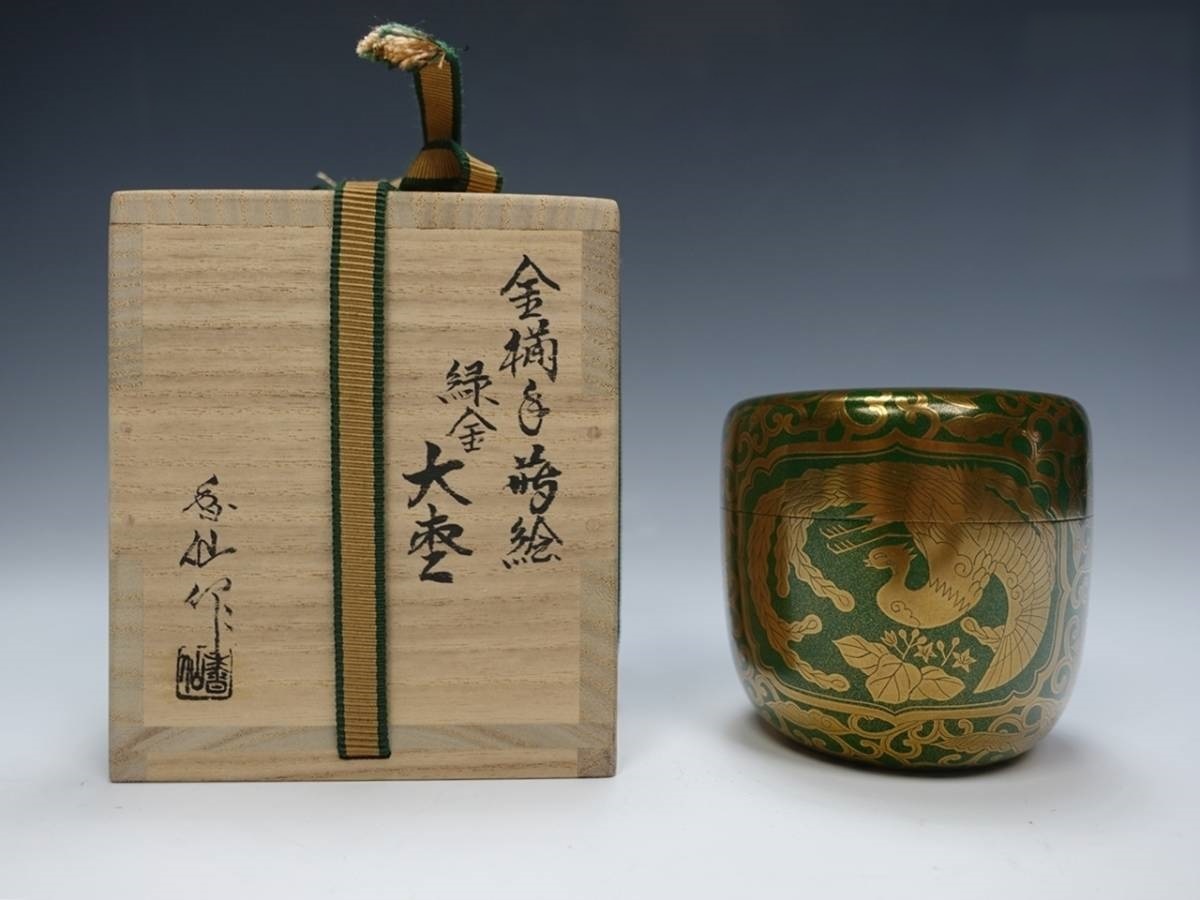 金襴手蒔絵
緑金
大棗
香仙作
香仙